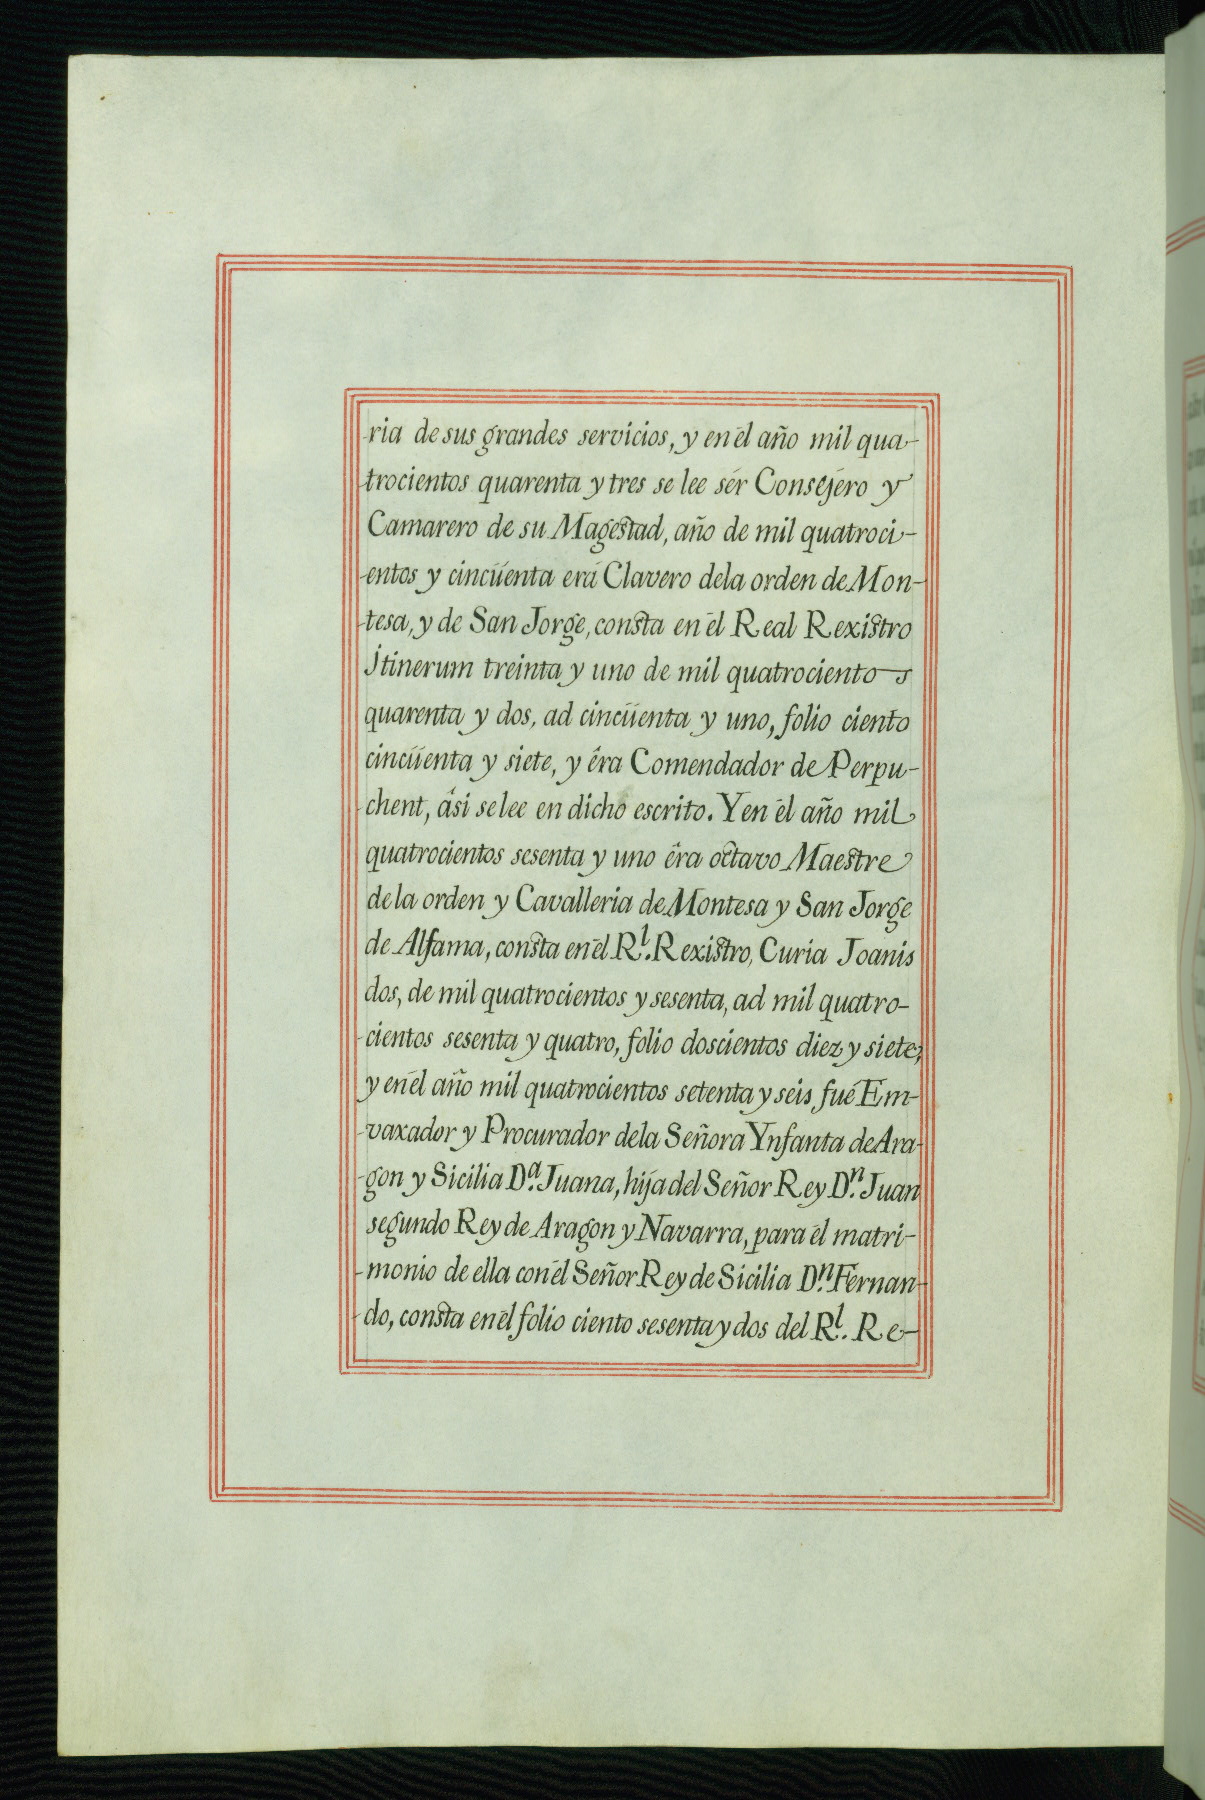 ria de sus grandes servicios, y en él año mil qua-
trocientos quarenta y tres se lee sér Consejéro y
Camarero de su Magestad, año de mil quatroci-
entos y cincüenta erá Clavero dela orden de Mon-
tesa, y de San Jorge, consta en él Real Rexistro
jtinerum treinta y uno de mil quatrocientos
quarenta y dos, ad cincüenta y uno, folio ciento
cincüenta y siete, y éra Comendador de Perpu-
chent, ási se lee en dicho escrito. Y en él año mil
quatrocientos sesenta y uno éra octavo Maestre
de la orden y Cavalleria de Montesa y San Jorge
de Alfama, consta en él Rl. Rexistro, Curia Joanis
dos, de mil quatrocientos y sesenta, ad mil quatro-
cientos sesenta y quatro, folio doscientos diez y siete,
y en él año mil quatrocientos setenta y seis fué Em-
vaxador y Procurador dela Señora Ynfanta de Ara-
gon y Sicilia Da. Juana, hija del Señor Rey Dn. Juan
segundo Rey de Aragon y Navarra, para él matri-
monio de ella con él Señor Rey de Sicilia Dn. Fernan-
do, consta en él folio ciento sesenta y dos del Rl. Re-